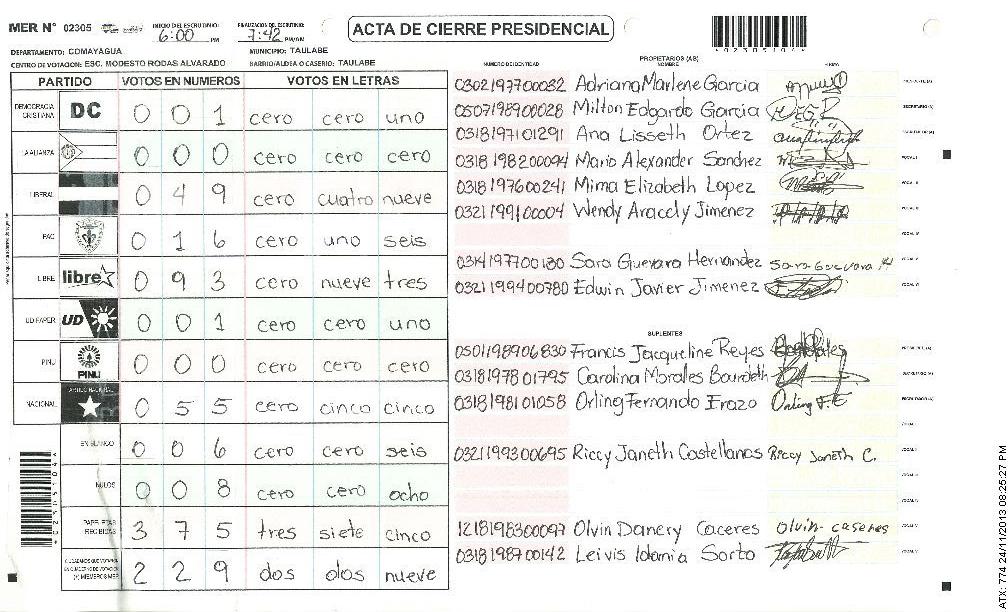 MER N° 02305
INICIO DEL ESCRUTINIO: 6:00 PM
FINALIZACION DEL ESCRUTINIO: 7:42 PM/AM
ACTA DE CIERRE PRESIDENCIAL
DEPARTAMENTO: COMAYAGUA
MUNICIPIO: TAULABE
CENTRO DE VOTACION: ESC. MODESTO RODAS ALVARADO
BARRIO/ALDEA O CASERIO: TAULABE
PARTIDO VOTOS EN NUMEROS VOTOS EN LETRAS
DEMOCRACIA CRISTIANA DC 0 0 1 cero cero uno
LA ALIANZA 0 0 0 cero cero cero
LIBERAL 0 4 9 cero cuatro nueve
PAC 0 1 6 cero uno seis
LIBRE libre 0 9 3 cero nueve tres
UD FAPER UD 0 0 1 cero cero uno
PINU PINU 0 0 0 cero cero cero
NACIONAL 0 5 5 cero cinco cinco
EN BLANCO 0 0 6 cero cero seis
NULOS 0 0 8 cero cero ocho
PAPELETAS RECIBIDAS 3 7 5 tres siete cinco
2 2 9 dos dos nueve
PROPIETARIOS (AS)
NUMERO DE IDENTIDAD NOMBRE FIRMA
0302197700032 Adriana Marlene Garcia
0507198900028 Milton Edgardo Garcia
0318197101291 Ana Lisseth Ortez
0318198200094 Mario Alexander Sanchez
0318197600241 Mirna Elizabeth Lopez
0321199100004 Wendy Aracely Jimenez
0314197700130 Sara Guevara Hernandez Sara Guevara H
0321199400780 Edwin Javier Jimenez
SUPLENTES
0501198906830 Francis Jacqueline Reyes
0318197801795 Carolina Morales Bourdeth
0318198101058 Orling Fernando Erazo Orling F. E
0321199300695 Riccy Janeth Castellanos Riccy Janeth C.
1218198300097 Olvin Danery Caceres olvin caseres
0318198700142 Leivis Idamia Sorto
*02305104*
ATX: 774 24/11/2013 08:25:27 PM